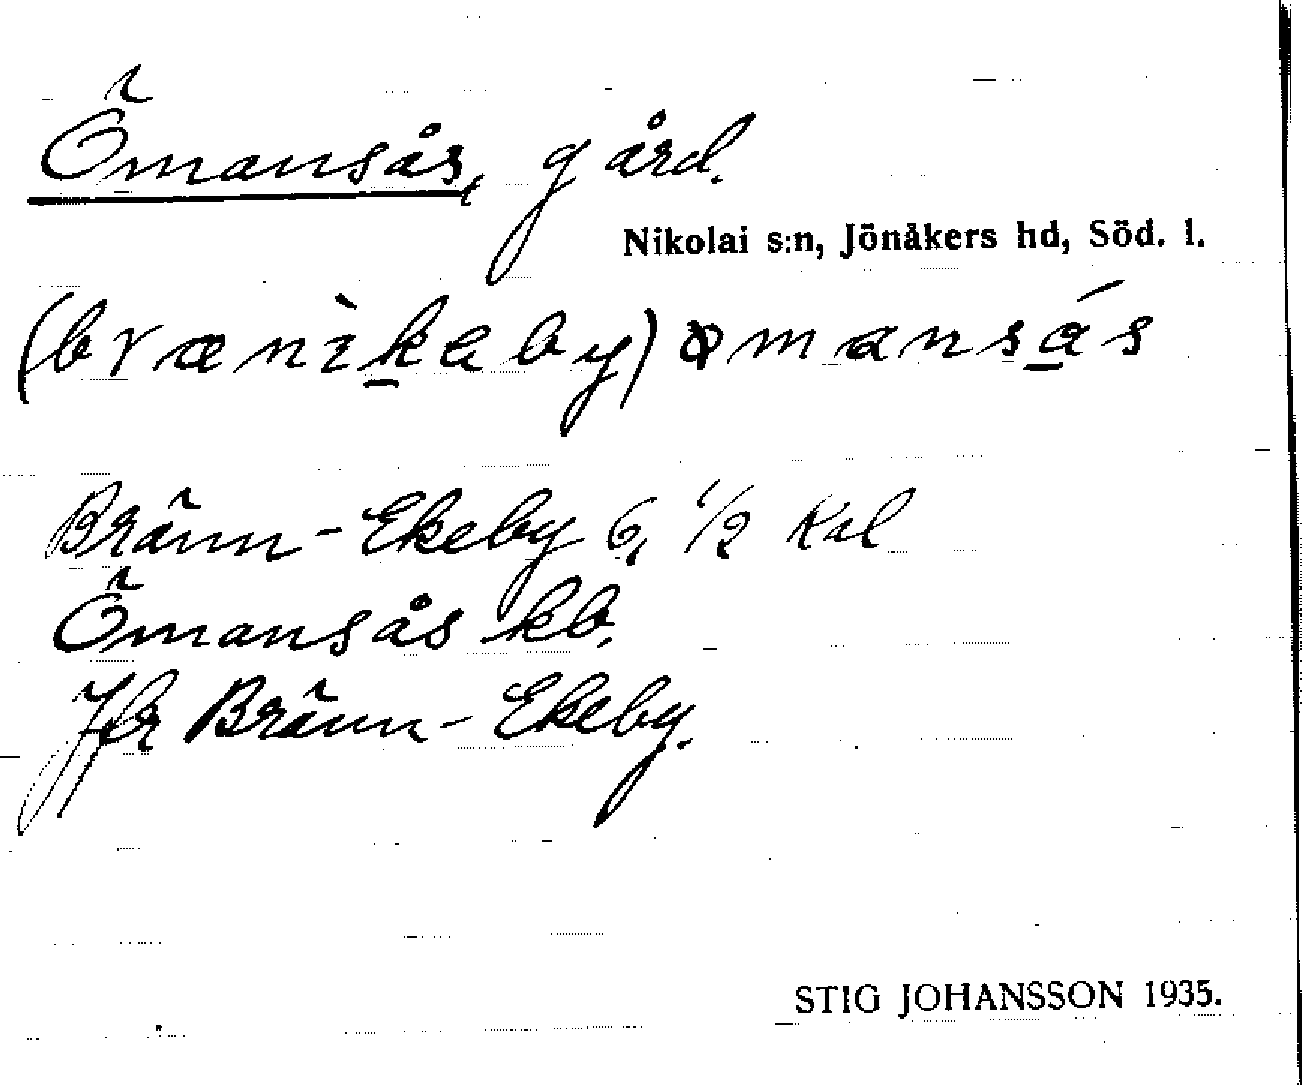 Ömansås, gård.
Nikolai s:n, Jönåkers hd, Söd. l.
(brænìkeby) ømansás
Bränn-Ekeby 6, 1/2 Kal
Ömansås kb.
Jfr Bränn-Ekeby.
STIG JOHANSSON 1935.